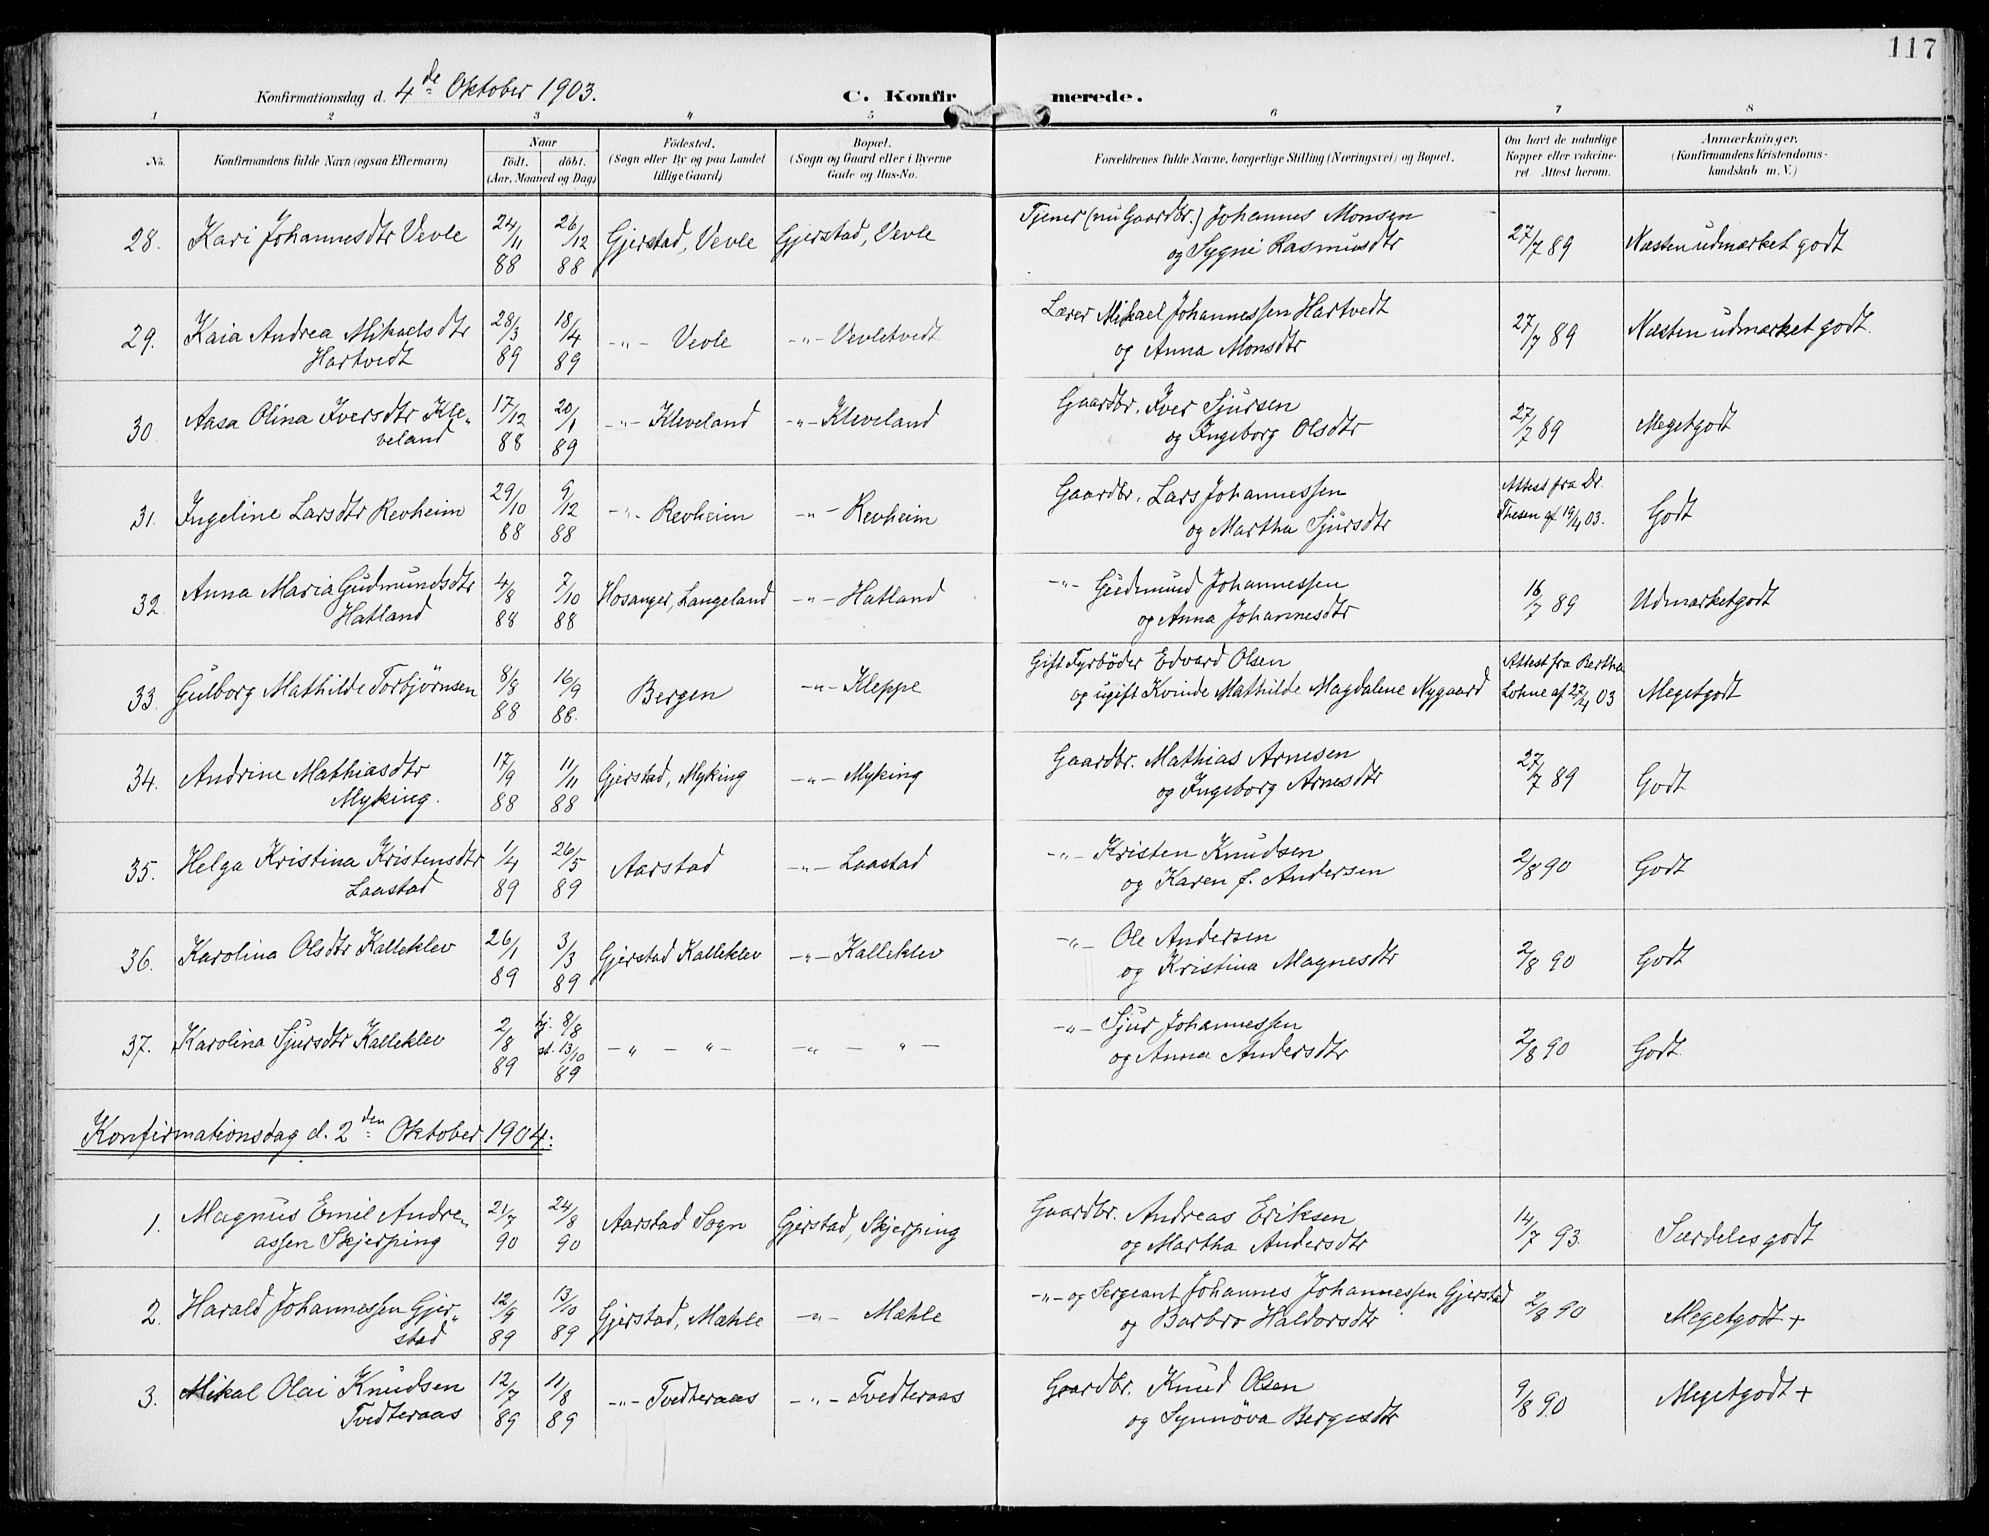 117
Konfirmationsdag d. 4de Oktober 1903.
C. Konfirmerede.
1 2 3 4 5 6 7 8
No. Konfirmandens fulde Navn (ogsaa Efternavn) Naar födt. döbt. (Aar, Maaned og Dag) Födested. (Sogn eller By og paa Landet tillige Gaard) Bopæl. (Sogn og Gaard eller i Byerne Gade og Hus-No. Forældrenes fulde Navne, borgerlige Stilling (Næringsvei) og Bopæl. Om havt de naturlige Kopper eller vakcineret Attest herom. Anmærkninger. (Konfirmandens Kristendomskundskab m. V.)
28. Kari Johannesdtr Vevle 24/11 88 26/12 88 Gjerstad, Vevle Gjerstad, Vevle Tjener (nu Gaardbr.) Johannes Monsen
og Sygni Rasmusdtr 27/7 89 Næsten udmærket godt
29. Kaia Andrea Mikaelsdtr
Hartvedt 28/3 89 18/4 89 -"- Vevle -"- Vevletvedt Lærer Mikael Johannessen Hartvedt
og Anna Monsdtr 27/7 89 Næsten udmærket godt.
30. Aasa Olina Iversdtr Kle-
veland 17/12 88 20/1 89 -"- Kleveland -"- Kleveland Gaardbr. Iver Sjursen
og Ingeborg Olsdtr 27/7 89 Megetgodt
31. Ingeline Larsdtr Revheim 29/10 88 9/12 88 -"- Revheim -"- Revheim Gaardbr. Lars Johannessen
og Martha Sjursdtr Attest fra Dr.
Thesen af 19/4 03. Godt
32. Anna Maria Gudmundsdtr
Hatland 4/8 88 7/10 88 Hosanger, Langeland -"- Hatland -"- Gudmund Johannessen
og Anna Johannesdtr 16/7 89 Udmærketgodt
33. Gulborg Mathilde Torbjörnsen 8/8 88 16/9 88. Bergen -"- Kleppe Gift Fyrbøder Edvard Olsen
og ugift Kvinde Mathilde Magdalene Nygaard Attest fra Bertha
Lohne af 27/4 03 Megetgodt
34. Andrine Mathiasdtr
Myking. 17/9 88 11/11 88 Gjerstad, Myking -"- Myking Gaardbr. Mathias Arnesen
og Ingeborg Arnesdtr 27/7 89 Godt
35. Helga Kristina Kristensdtr
Laastad 1/4 89 26/5 89 Aarstad -"- Laastad -"- Kristen Knudsen
og Karen f. Andersen 2/8 90 Godt
36. Karolina Olsdtr Kalleklev 26/1 89 3/3 89 Gjerstad Kalleklev -"- Kalleklev -"- Ole Andersen
og Kristina Magnesdtr 2/8 90 Godt
37. Karolina Sjursdtr Kalleklev 2/8 89 hj. 8/8 st. 13/10 89 -"- -"- -"- -"- -"- Sjur Johannessen
og Anna Andersdtr 2/8 90 Godt.
Konfirmationsdag d. 2den Oktober 1904:
1. Magnus Emil Andre-
assen Skjerping 21/7 90 24/8 90 Aarstad Sogn Gjerstad, Skjerping Gaardbr. Andreas Eriksen
og Martha Andersdtr 14/7 93. Særdeles godt
2. Harald Johannessen Gjer-
stad 12/9 89 13/10 89 Gjerstad, Mæhle -"- Mæhle -"- og Sergeant Johannes Johannessen Gjerstad
og Barbro Haldorsdtr 2/8 90 Megetgodt +
3. Mikal Olai Knudsen
Tvedteraas 12/7 89 11/8 89 -"- Tvedteraas -"- Tvedteraas Gaardbr. Knud Olsen
og Synnöva Bergesdtr 9/8 90 Megetgodt +